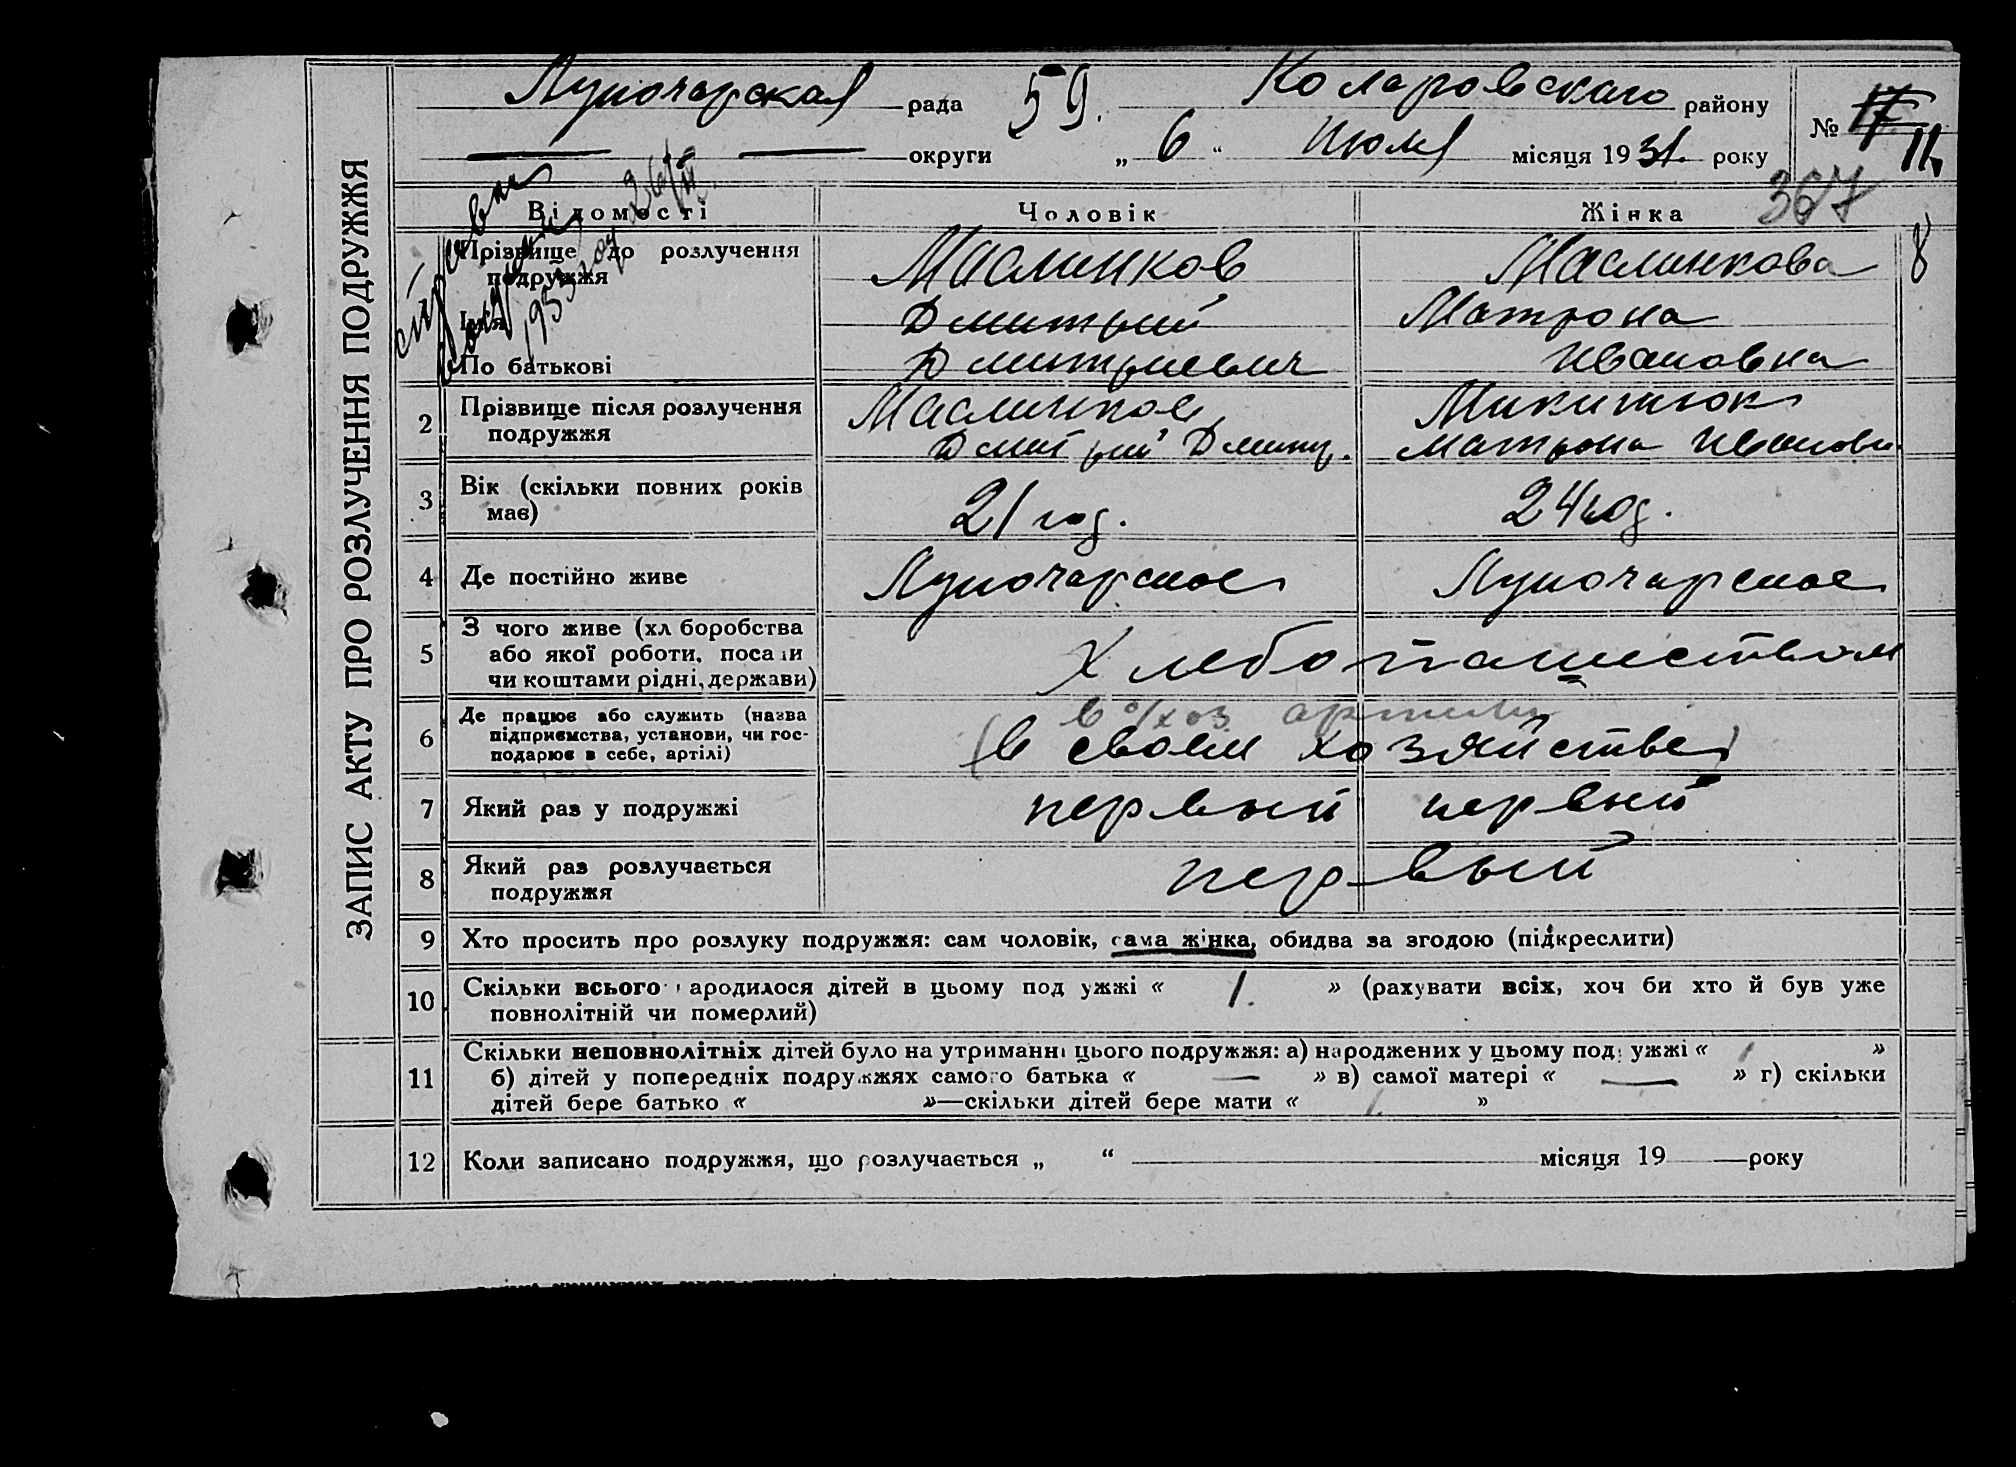 ЗАПИС АКТУ ПРО РОЗЛУЧЕННЯ ПОДРУЖЖЯ
Луночарская рада 59. Коларовскаго району
округи „ 6 “ Июля місяця 1931. року
№ 17 11
367
Відомості Чоловік Жінка
8
Прізвище до розлучення подружжя Маслинков Маслинкова
Імя Дмитрий Матрона
По батькові Дмитриевич Ивановна
2 Прізвище після розлучення Маслинков Микитюк
подружжя Дмитрий Дмитр. Матрона Ивановн.
3 Вік (скільки повних років 21 год. 24 год.
має)
4 Де постійно живе Луночарское Луночарское
5 З чого живе (хл боробства
або якої роботи, посади Хлебопашеством
чи коштами рідні, держави)
6 Де працює або служить (назва в с/хоз артели
підприємства, установи, чи гос- (в своем хозяйстве)
подарює в себе, артілі)
7 Який раз у подружжі первый первый
8 Який раз розлучається первый
подружжя
9 Хто просить про розлуку подружжя: сам чоловік, сама жінка, обидва за згодою (підкреслити)
10 Скільки всього народилося дітей в цьому под ужжі « 1. » (рахувати всіх, хоч би хто й був уже
повнолітній чи померлий)
11 Скільки неповнолітніх дітей було на утриманні цього подружжя: а) народжених у цьому под ужжі « 1 »
б) дітей у попередніх подружжях самого батька « — » в) самої матері « — » г) скільки
дітей бере батько « »—скільки дітей бере мати « 1. »
12 Коли записано подружжя, що розлучається „ “ місяця 19 року